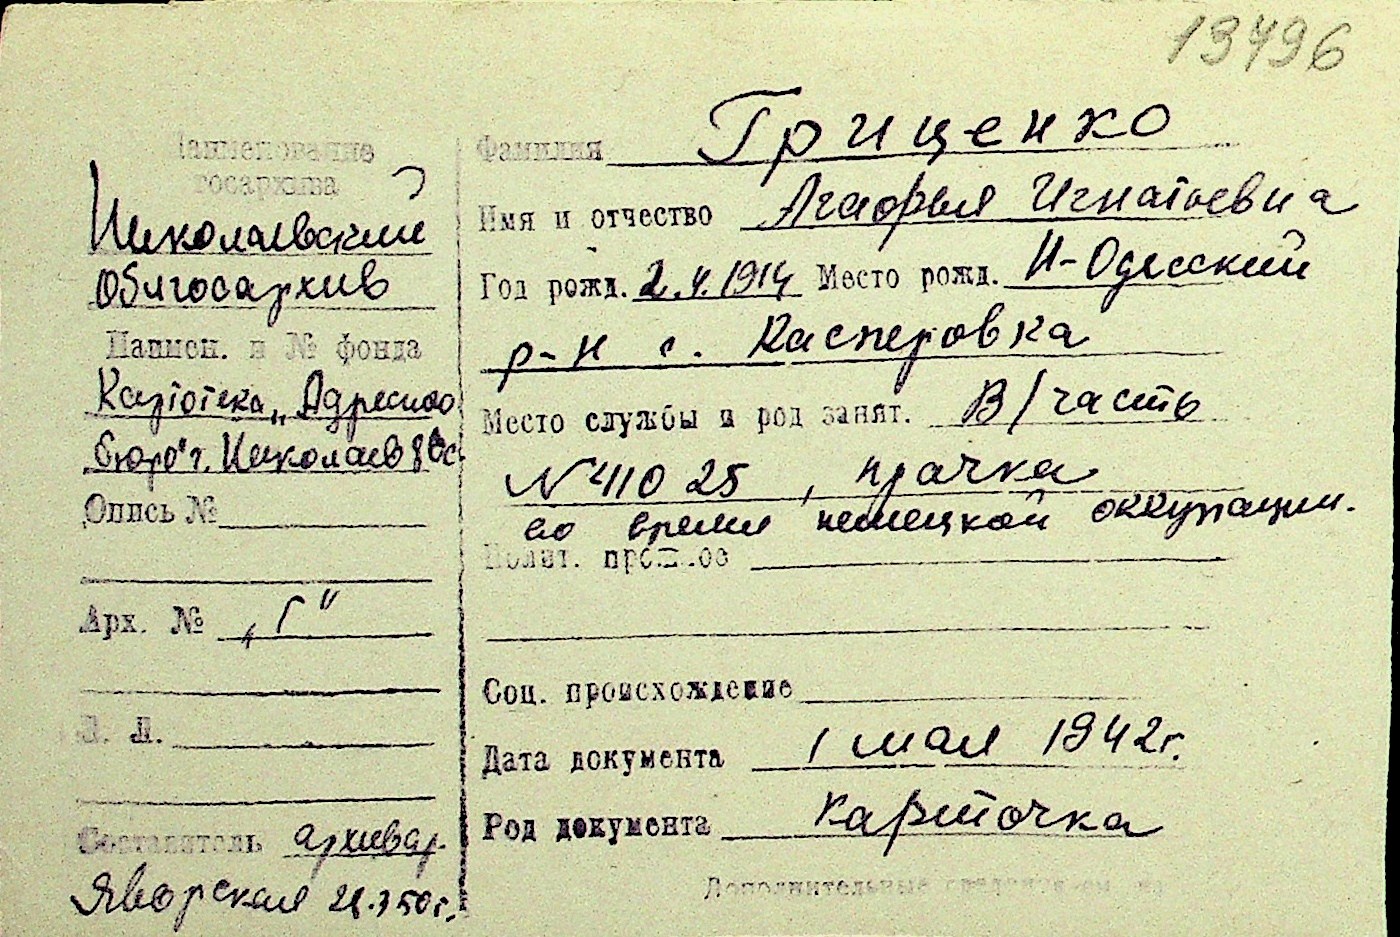 13496
Наименование
госархива
Николаевский
Облгосархив
Наимен. и № фонда
Картотека „Адресного
бюро" г. Николаев
Опись №
Арх. № „Г"
Л. Л.
Составитель архивар.
Яворская 50 г.
Фамилия Гриценко
Имя и отчество Агафья Игнатьевна
Год рожд. 2.V.1914 Место рожд. Н-Одесский
р-н с. Касперовка
Место службы и род занят. В/часть
№ 41025, прачка
во время немецкой оккупации.
Полит. прошлое
Соц. происхождение
Дата документа 1 мая 1942 г.
Род документа карточка
Дополнительные сведения